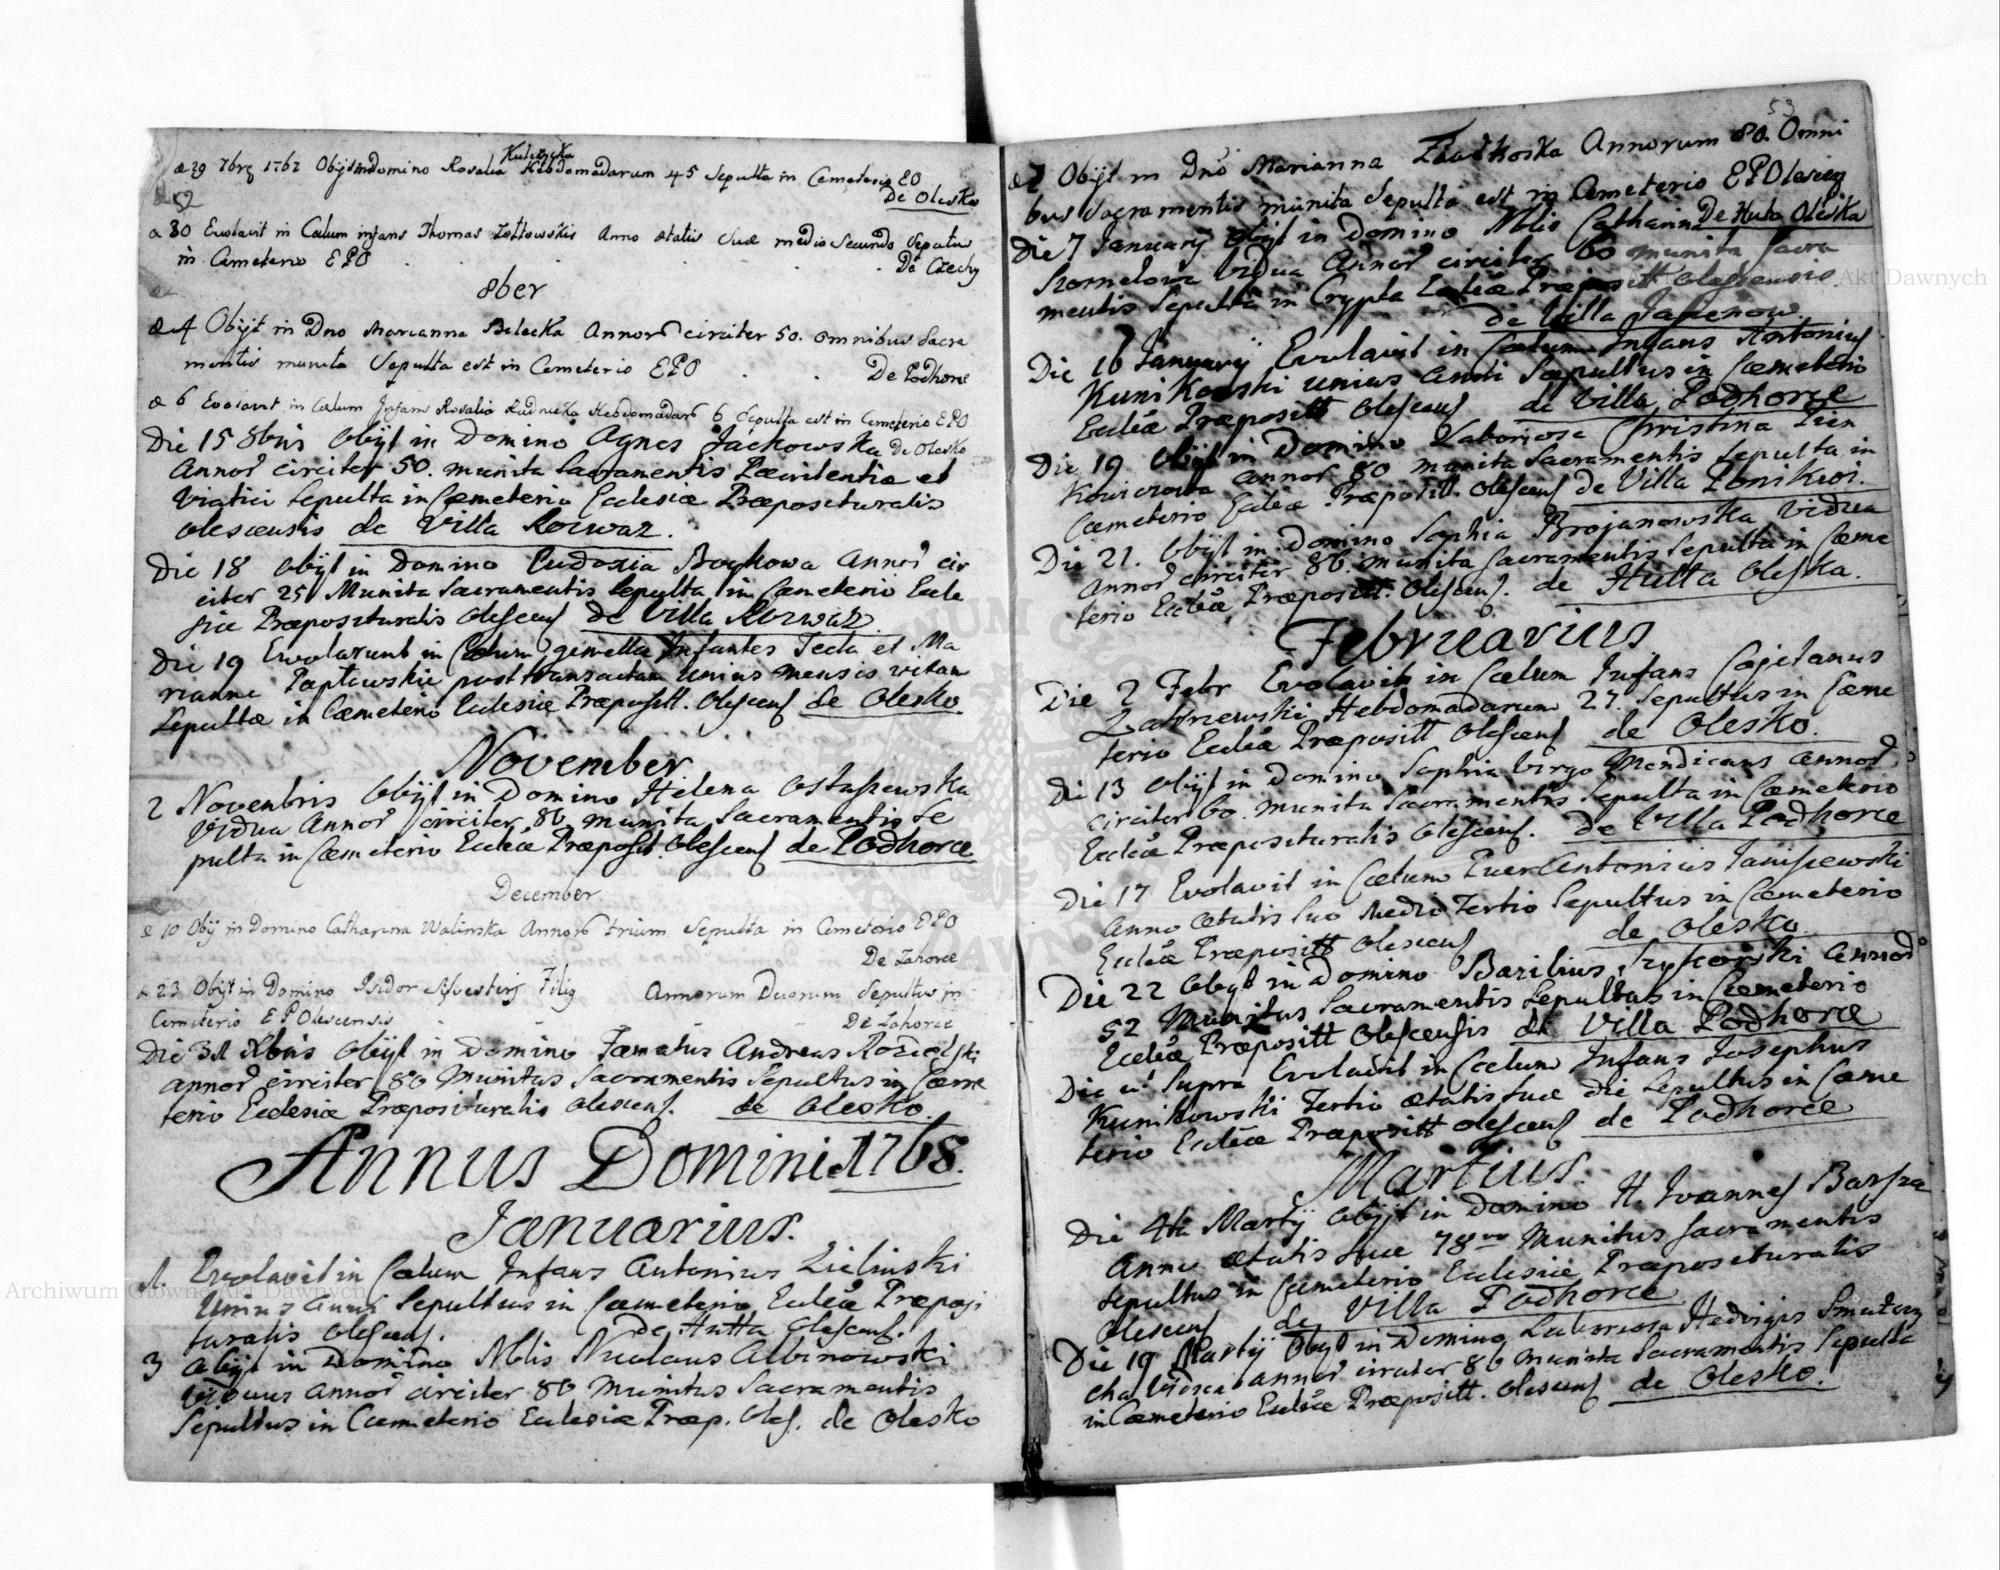 52
29 7brg 1767 Obijt in domino Rosalia Kulczycka Hebdomadarum 45 Sepulta in Cemeterio EO
De Olesko
30 Evolavit in Cœlum infans Thomas Zoltowskis Anno ætatis Suæ medio Secundo Sepultus
in Cemeterio EPO . . . . De Czechy
8ber
4 Obijt in Dno Marianna Bilecka Annor circiter 50. omnibus Sacra
mentis munita Sepulta est in Cemeterio EPO . . De Podhorce
6 Evolavit in Cœlum Infans Rosalia Rudnicka Hebdomadar 6 Sepulta est in Cemeterio EPO
De Olesko
Die 15 8bris Obijt in Domino Agnes Jackowska
Annor circiter 50. munita Sacramentis Pænitentiæ et
Viatici Sepulta in Cæmeterio Ecclesiæ Præposituralis
Olescensis de Villa Rozwaz.
Die 18 Obijt in Domino Eudoxia Boykowa Annor cir
citer 25 Munita Sacramentis Sepulta in Cæmeterio Eccle
siæ Præposituralis Olescens de Villa Rozwaz
Die 19 Evolarunt in Cœlum gemellæ Infantes Tecla et Ma
rianna post transactam unius mensis vitam
Sepultæ in Cæmeterio Ecclesiæ Præpositt. Olescens de Olesko.
November
2 Novembris Obijt in Domino Helena Ostaszewska
Vidua Annor circiter 80 munita Sacramentis Se
pulta in Cæmeterio Eccleæ Præposit. Olescens de Podhorce
December
10 Obij in Domino Catharina Walinska Annor trium Sepulta in Cemeterio EPO
De Zahorce
23 Obijt in Domino Isidor Silvestrij Filig Annorum Duorum Sepultus in
Cemeterio E P Olescensis . . De Zahorce
Die 31 Xbris Obijt in Domino Famatus Andreas
Annor circiter 80 Munitus Sacramentis Sepultus in Cæme
terio Ecclesiæ Præposituralis Olescens. de Olesko.
Annus Domini 1768.
Januarius.
1. Evolavit in Cœlum Infans Antonius Zielinski
Unius Anni Sepultus in Cæmeterio Eccleæ Præposi
turalis Olescens. de Hutta Olescens.
3 Obijt in Domino Nblis Nicolaus Albinowski
Viduus Annor circiter 80 Munitus Sacramentis
Sepultus in Cæmeterio Ecclesiæ Præp. Oles. de Olesko
53
2 Obijt in Dno Marianna Annorum 80. Omni
bus Sacramentis munita Sepulta est in Cemeterio EPOlescien
De Huta Oleska
Die 7 January Obijt in Domino Nblis Catharina
Vidua Annor circiter 60 munita Sacra
mentis Sepulta in Crypta Eccleæ Præposit Olescensis.
de Villa Jasienow.
Die 16 Januarij Evolavit in Cœlum Infans Antonius
Kunikowski unius Anni Sepultus in Cæmeterio
Eccleæ Præpositt Olescens de Villa Podhorce
Die 19 Obijt in Domino Laboriosa Christina Zien
kowiczowa Annor 80 munita Sacramentis Sepulta in
Cæmeterio Eccleæ Præpositt. Olescens de Villa Ponikwi.
Die 21. Obijt in Domino Sophia Brojanowska Vidua
Annor circiter 86. munita Sacramentis Sepulta in Cæme
terio Eccleæ Præpositt. Olescens. de Hutta Oleska.
Februarius
Die 2 Febr Evolavit in Cœlum Infans Cajetanus
Zakrzewski Hebdomadarum 27. Sepultus in Cæme
terio Eccleæ Præpositt Olescens de Olesko.
Die 13 Obijt in Domino Sophia Virgo Mendicans Annor
circiter 60. munita Sacramentis Sepulta in Cæmeterio
Eccleæ Præposituralis Olescens. de Villa Podhorce
Die 17 Evolavit in Cœlum Puer Antonius Janiszewski
Anno ætatis Suo Medio Tertio Sepultus in Cæmeterio
Eccleæ Præpositt Olescens de Olesko
Die 22 Obijt in Domino Bazilius Annor
52 Munitus Sacramentis Sepultus in Cæmeterio
Eccleæ Præpositt Olescensis de Villa Podhorce
Die ut Supra Evolavit in Cœlum Infans Josephus
Kunikowski Tertio ætatis suæ die Sepultus in Cæme
terio Eccleæ Præpositt Olescens de Podhorce
Martius.
Die 4ta Martij Obijt in Domino H. Ioannes Barszcz
Anno ætatis suæ 78vo Munitus Sacramentis
Sepultus in Cæmeterio Ecclesiæ Præposituralis
Olescens de Villa Podhorce
Die 19 Martij Obijt in Domino Laboriosa Hedvigis
cha Vidua annor circiter 80 Munita Sacramentis Sepulta
in Cæmeterio Eccleæ Præpositt. Olescens de Olesko.
Archiwum Główne Akt Dawnych